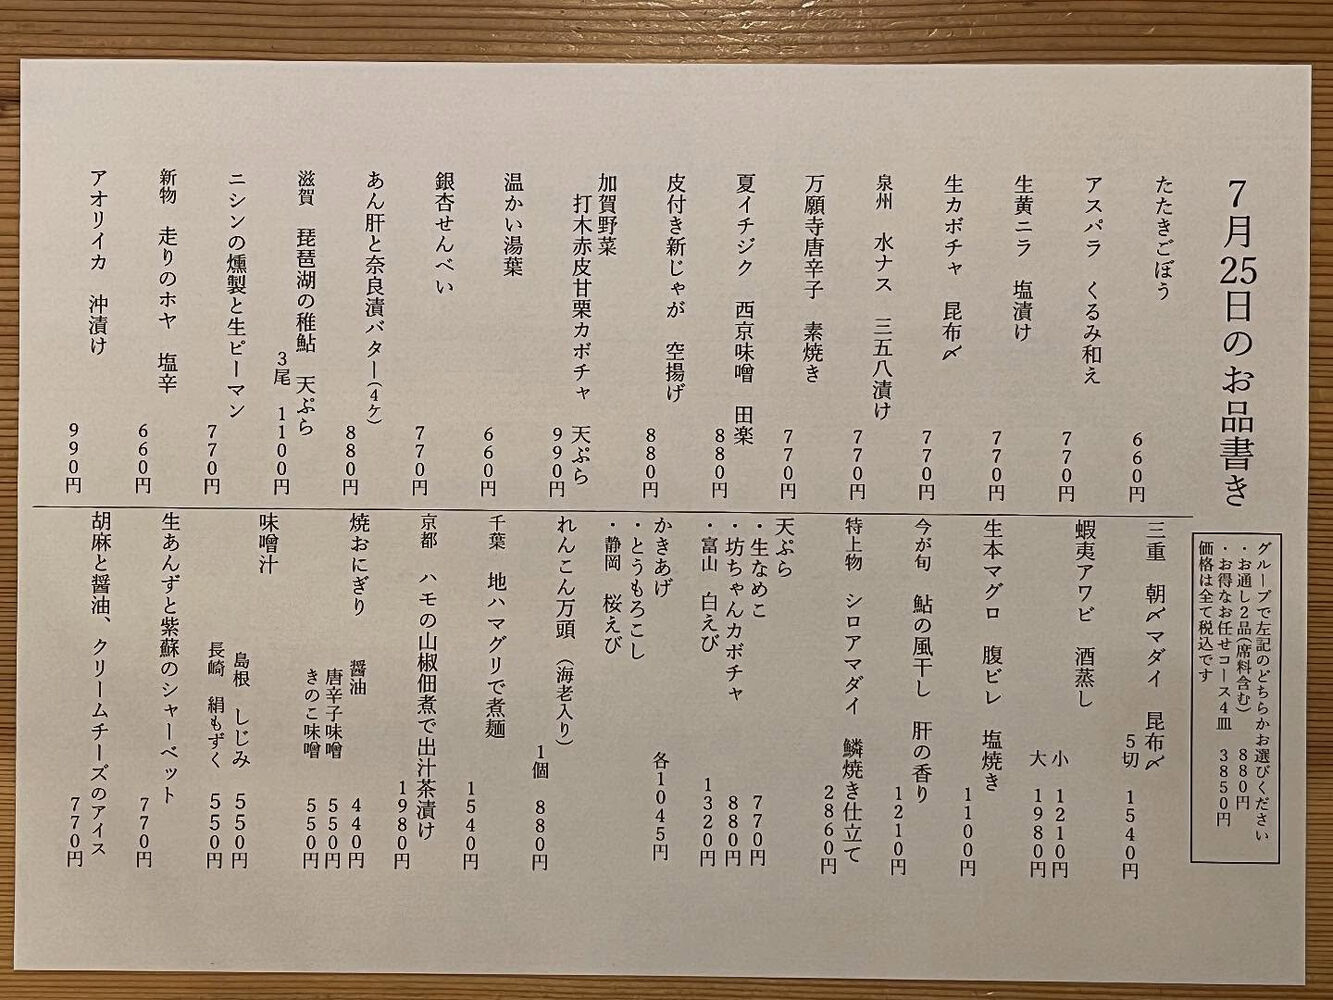 7月25日のお品書き
グループで左記のどちらかお選びください
・お通し2品(席料含む) 880円
・お得なお任せコース4皿 3850円
価格は全て税込です
たたきごぼう 660円
アスパラ くるみ和え 770円
生黄ニラ 塩漬け 770円
生カボチャ 昆布〆 770円
泉州 水ナス 三五八漬け 770円
万願寺唐辛子 素焼き 770円
夏イチジク 西京味噌 田楽 880円
皮付き新じゃが 空揚げ 880円
加賀野菜
打木赤皮甘栗カボチャ 天ぷら 990円
温かい湯葉 660円
銀杏せんべい 770円
あん肝と奈良漬バター(4ケ) 880円
滋賀 琵琶湖の稚鮎 天ぷら
3尾 1100円
ニシンの燻製と生ピーマン 770円
新物 走りのホヤ 塩辛 660円
アオリイカ 沖漬け 990円
三重 朝〆マダイ 昆布〆
5切 1540円
蝦夷アワビ 酒蒸し
小 1210円
大 1980円
生本マグロ 腹ビレ 塩焼き 1100円
今が旬 鮎の風干し 肝の香り 1210円
特上物 シロアマダイ 鱗焼き仕立て 2860円
天ぷら
・生なめこ 770円
・坊ちゃんカボチャ 880円
・富山 白えび 1320円
かきあげ 各1045円
・とうもろこし
・静岡 桜えび
れんこん万頭 (海老入り)
1個 880円
千葉 地ハマグリで煮麺 1540円
京都 ハモの山椒佃煮で出汁茶漬け 1980円
焼おにぎり 醤油 440円
唐辛子味噌 550円
きのこ味噌 550円
味噌汁
島根 しじみ 550円
長崎 絹もずく 550円
生あんずと紫蘇のシャーベット 770円
胡麻と醤油、クリームチーズのアイス 770円